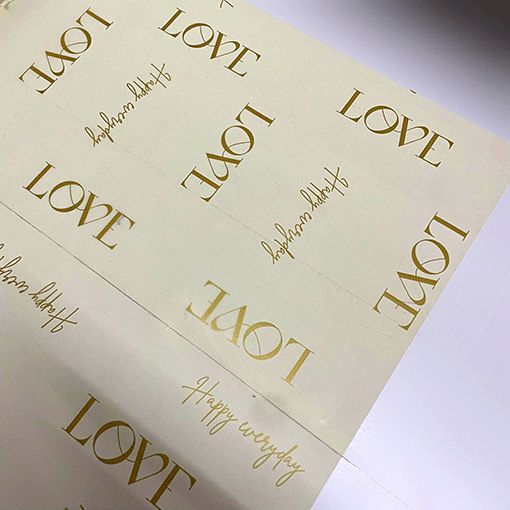 LOVE
LOVE
Happy everyday
LOVE
LOVE
Happy everyday
LOVE
LOVE
Happy everyday
LOVE
Happy everyday
LOVE